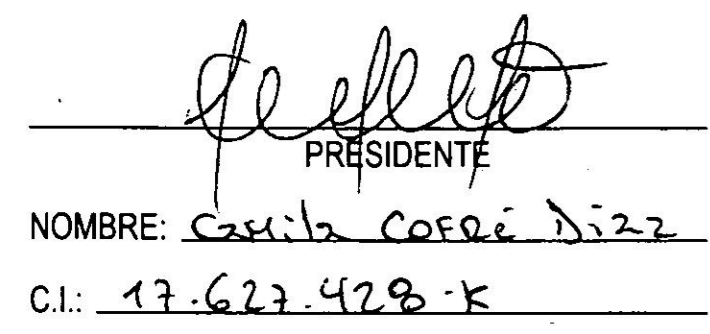 PRESIDENTE
NOMBRE: Camila COFRé Diaz
C.I.: 17.627.428-K